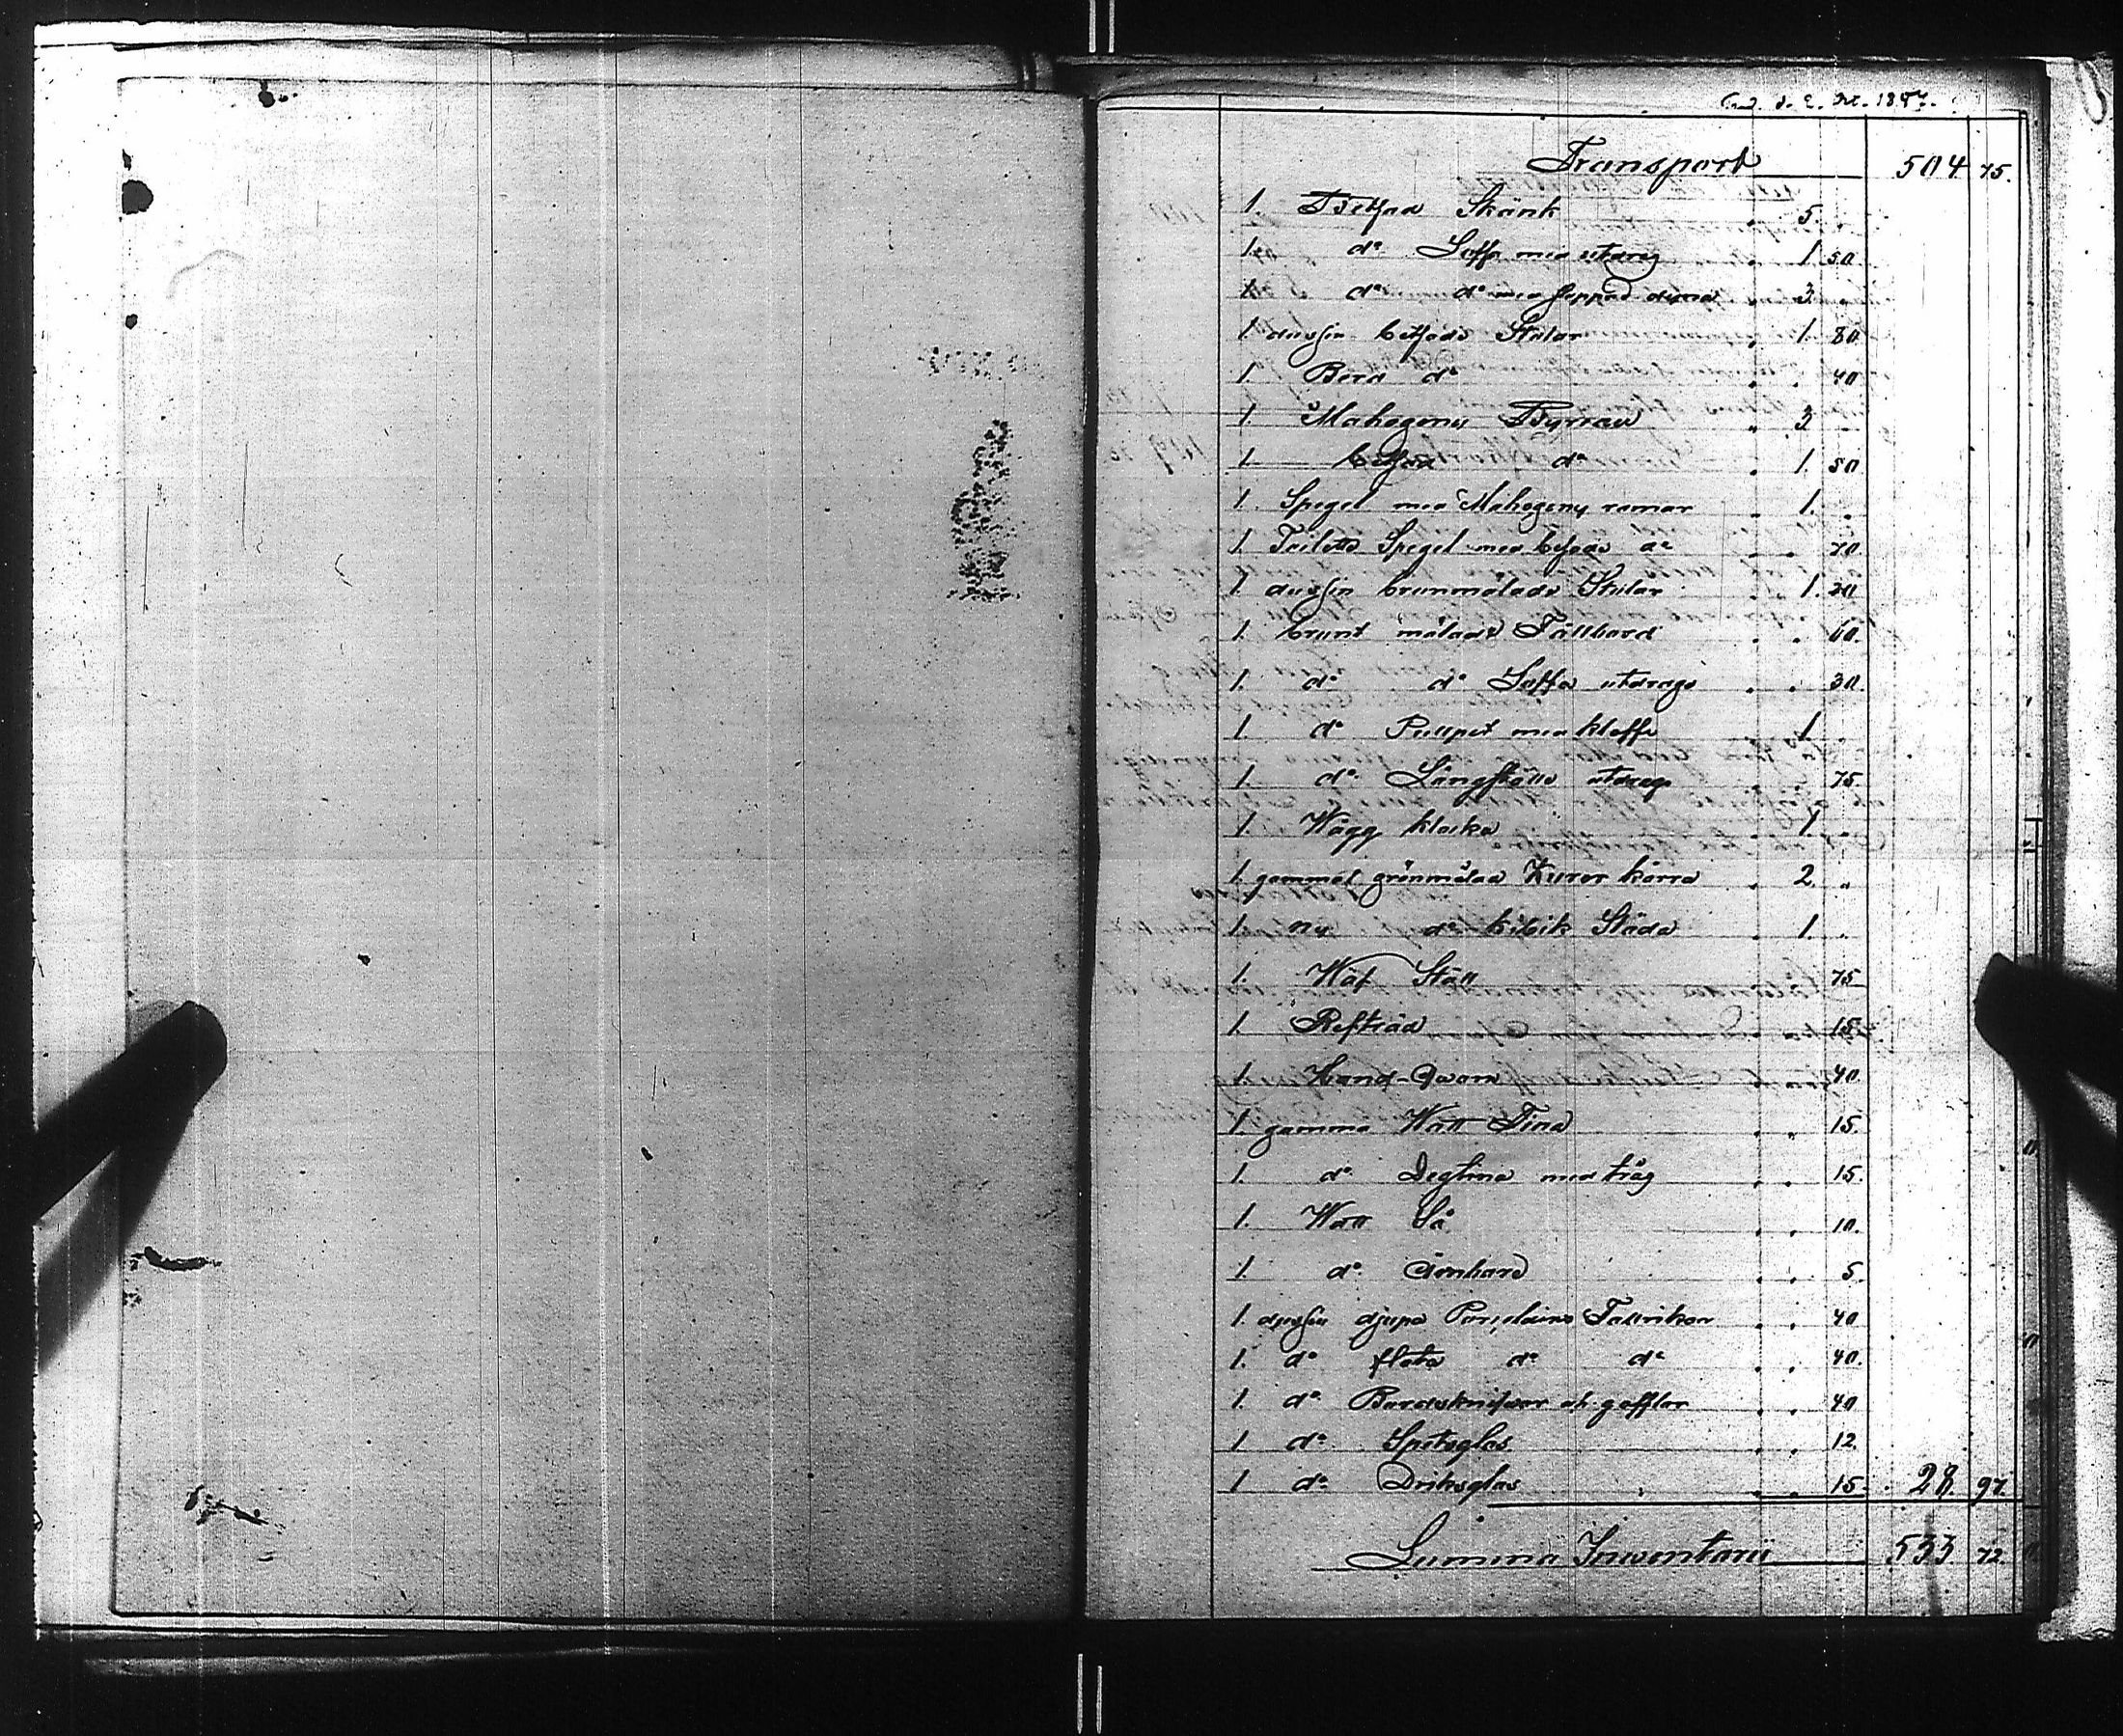 d. 2. Oct. 1887.
Transport 504 75.
1. Betsad Skänk " 5. "
1. do Soffa med utdrag " 1. 50.
1. do do med stoppad dyna " 3. "
1. dussin betsade Stolar " 1. 80.
1. Bord do " " 40
1. Mahogeny Byrrau " 3 "
1. betsad do " 1. 50
1. Spegel med Mahogeny ramar " 1. "
1. Toilette Spegel med betsade do " " 70.
1. dussin brunmålade Stolar " 1. 20.
1. brunt målade Fällbord " " 60.
1. do do Soffa utdrags " " 30.
1. do Pullpet med klaff " 1 "
1. do Långställe utdrag " " 75.
1. Wägg klocka " 1 "
1. gammal grönmålad Kurer kärra " 2 "
1. ny do Kibik Släda " 1. "
1. Wäf Ställ " " 75
1. Refträd " " 15
1. Hand-Qwarn " " 40.
1. gamma Watt Tina " " 15.
1. do Degtina med tråg " " 15.
1. Watt Så " " 10.
1. do " " 5.
1. dussin djupa Porslains Tallrikar " " 40
1. do flata do do " " 40.
1. do Bordsknifvar och gafflar " " 40
1 do Spetsglas " " 12.
1 do Driksglas " " 15. 28 97.
Summa Inventarii 533 72.